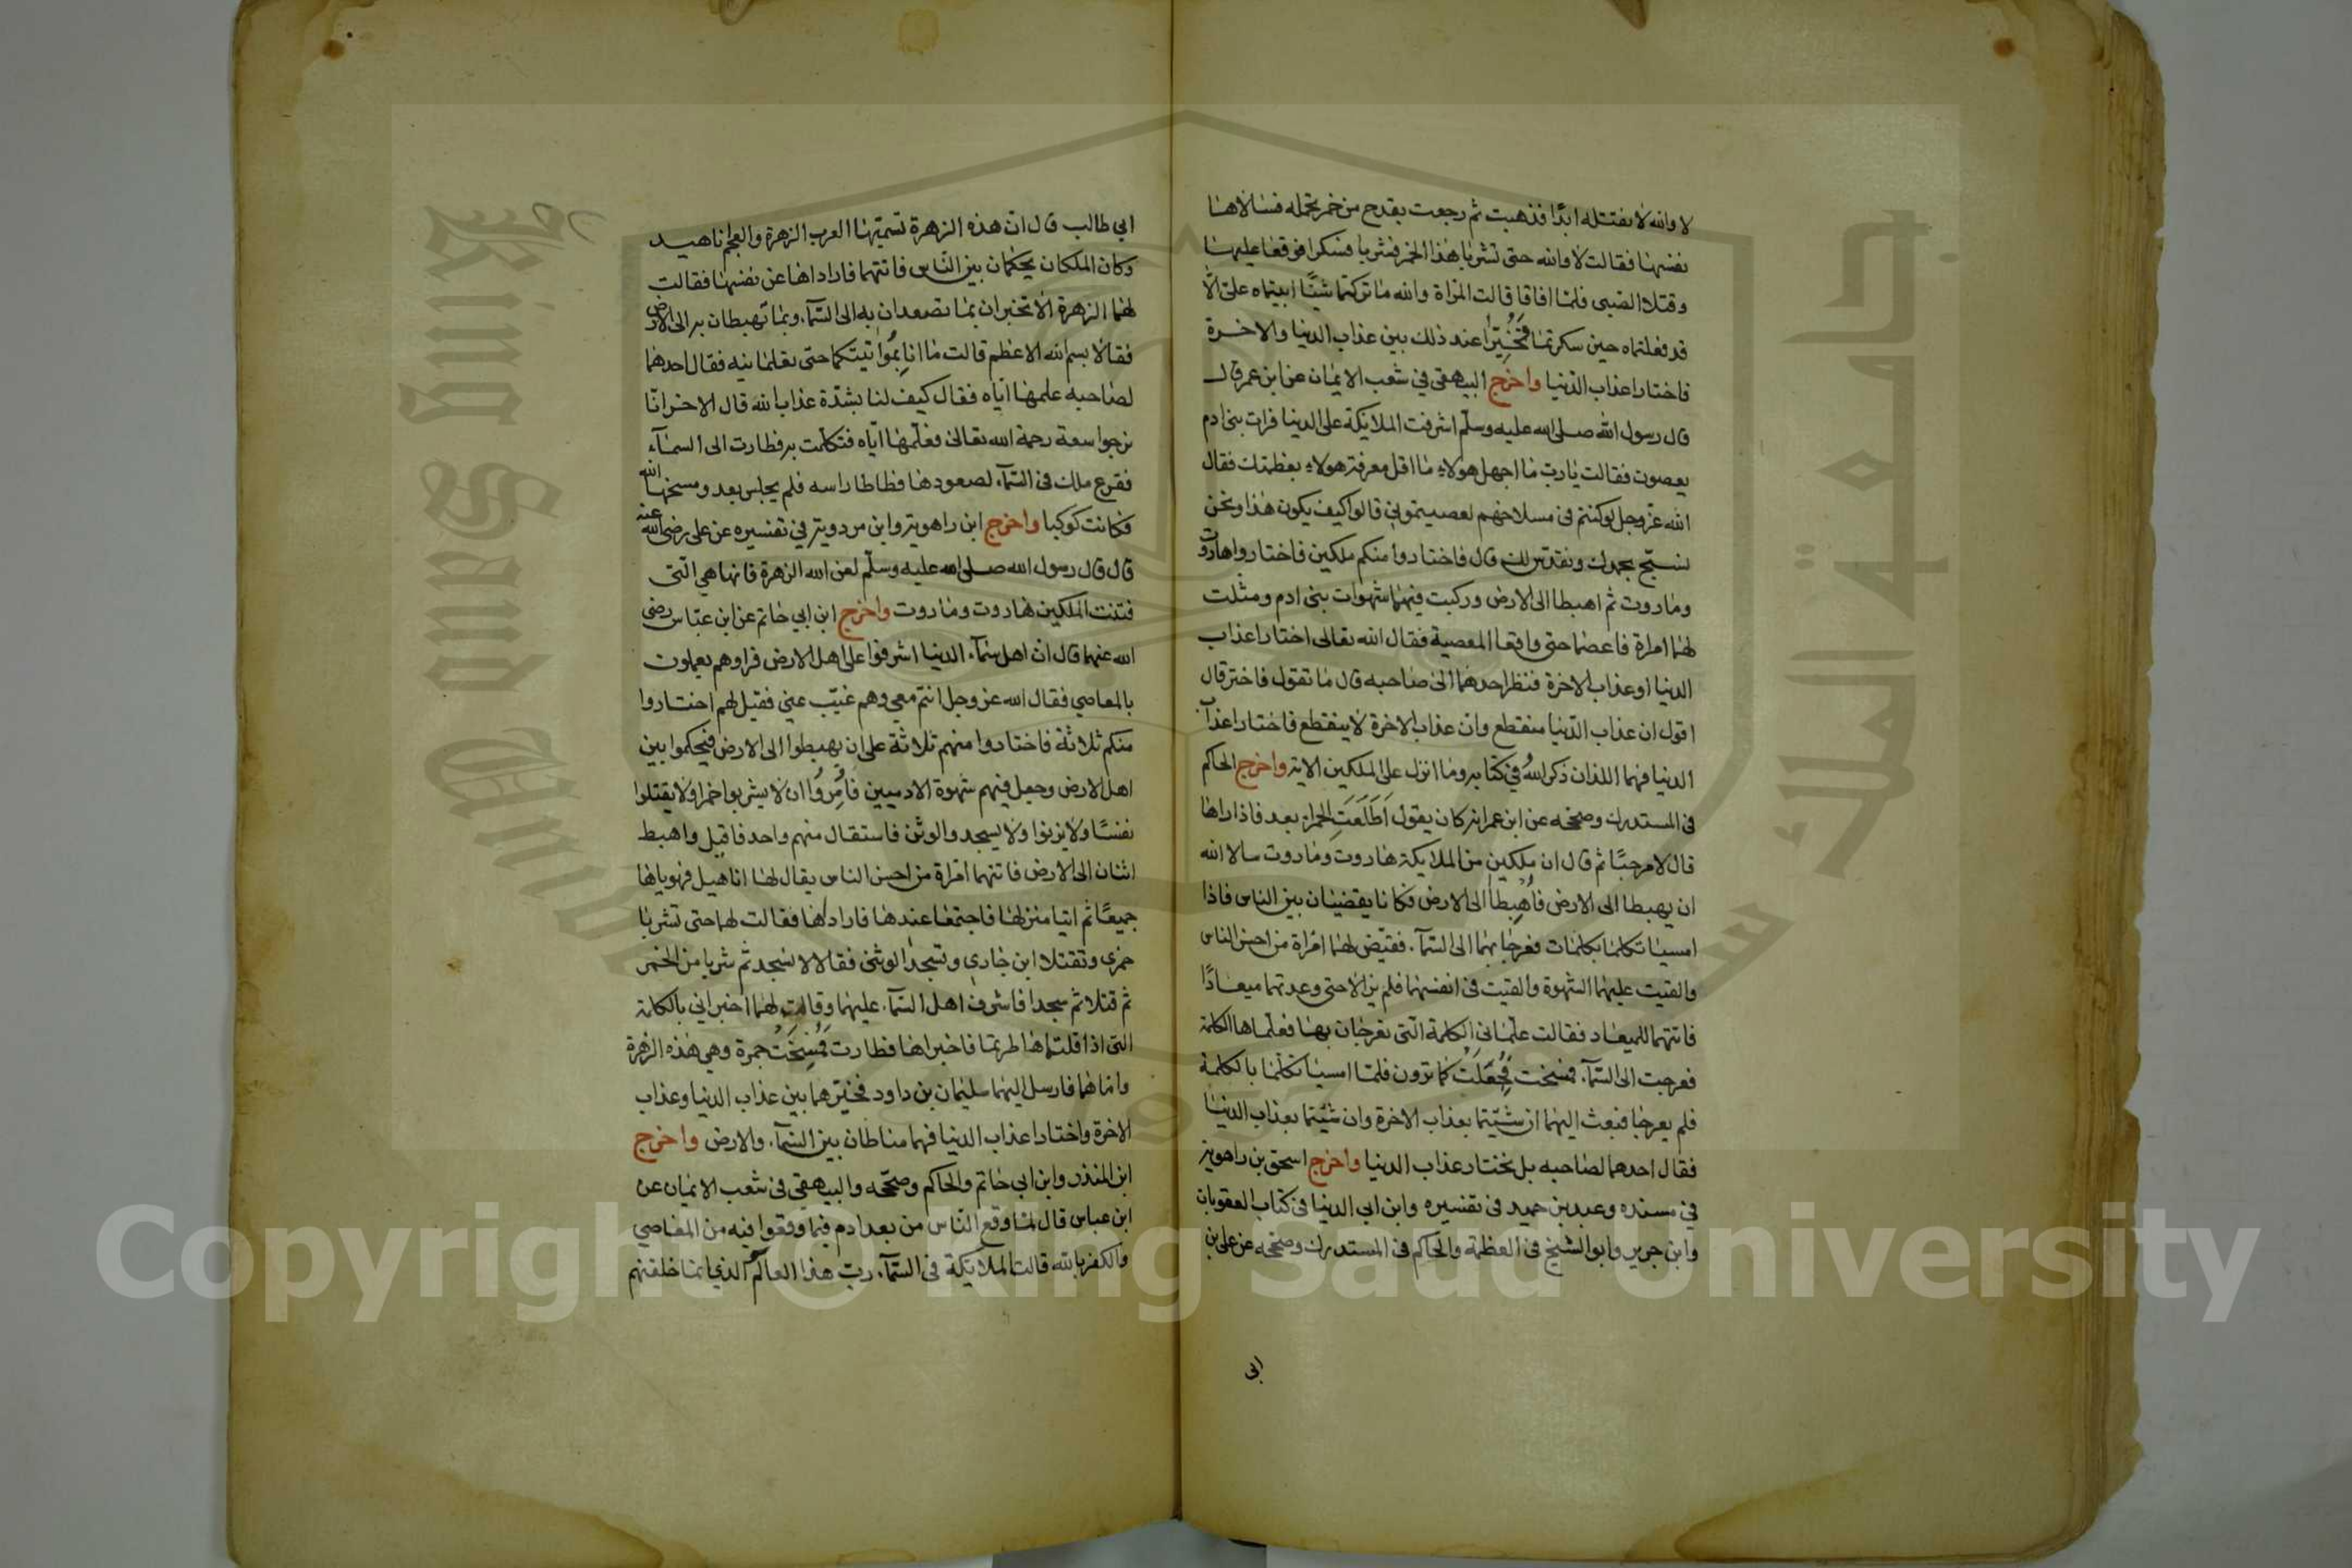 لا والله لا نقتله ابدًا فذهبت ثم رجعت بقدح من خمر تحمله فسالاها
نفسها فقالت لا والله حتى تشربا هذا الخمر فشربا فسكرا فوقعا عليها
وقتلا الصبى فلما افاقا قالت المراة والله ما تركتما شيئًا ابيتماه على الّا
قد فعلتماه حين سكرتما فَخُيِّرا عند ذلك بين عذاب الدنيا والاخرة
فاختارا عذاب الدنيا واخرج البيهقى في شعب الايمان عن ابن عمر قال
قال رسول الله صلى الله عليه وسلم اشرفت الملائكة على الدنيا فرات بنى ادم
يعصون فقالت يارب ما اجهل هولاء ما اقل معرفة هولاء بعظمتك فقال
الله عز وجل لوكنتم فى مسلاخهم لعصيتمونى قالوا كيف يكون هذا ونحن
نسبح بحمدك ونقدس لك قال فاختاروا منكم ملكين فاختاروا هاروت
وماروت ثم اهبطا الى الارض وركبت فيهما شهوات بنى ادم ومثلت
لهما امراة فما عصما حتى واقعا المعصية فقال الله تعالى اختارا عذاب
الدنيا او عذاب الاخرة فنظر احدهما الى صاحبه قال ما تقول فاختر قال
اقول ان عذاب الدنيا منقطع وان عذاب الاخرة لا ينقطع فاختارا عذاب
الدنيا فهما اللذان ذكر الله في كتابه وما انزل على الملكين الاية واخرج الحاكم
فى المستدرك وصححه عن ابن عمر انه كان يقول اَطَلَعَتِ الحمراء بعد فاذا راها
قال لا مرحبًا ثم قال ان ملكين من الملايكة هاروت وماروت سالا الله
ان يهبطا الى الارض فأُهبِطا الى الارض فكانا يقضيان بين الناس فاذا
امسيا تكلما بكلمات فعرجا بهما الى السماء فقيّض لهما امراة من احسن الناس
والقيت عليهما الشهوة والقيت فى انفسهما فلم يزالا حتى وعدتهما ميعادًا
فاتتهما للميعاد فقالت علّمانى الكلمة التى تعرجان بها فعلّماها الكلمة
فعرجت الى السماء فمسخت فَجُعِلَتْ كما ترون فلما امسيا تكلما بالكلمة
فلم يعرجا فبعث اليهما ان شئتما بعذاب الاخرة وان شئتما بعذاب الدنيا
فقال احدهما لصاحبه بل نختار عذاب الدنيا واخرج اسحق بن راهويه
في مسنده وعبد بن حميد فى تفسيره وابن ابى الدنيا فى كتاب العقوبات
وابن جرير وابو الشيخ فى العظمة والحاكم فى المستدرك وصححه عن على بن
ابى
ابي طالب قال ان هذه الزهرة تسميها العرب الزهرة والعجم اناهيد
وكان الملكان يحكمان بين الناس فاتتهما فاراداها عن نفسها فقالت
لهما الزهرة الا تخبران بما تصعدان به الى السماء وبما تهبطان به الى الارض
فقالا بسم الله الاعظم قالت ما انا بمواتيتكما حتى تعلمانيه فقال احدهما
لصاحبه علمها اياه فقال كيف لنا بشدة عذاب الله قال الاخر انّا
نرجوا سعة رحمة الله تعالى فعلّمها اياه فتكلمت به فطارت الى السماء
ففزع ملك فى السماء لصعودها فطاطا راسه فلم يجلس بعد ومسخها الله
فكانت كوكبا واخرج ابن راهويه وابن مردويه في تفسيره عن على رضى الله عنه
قال قال رسول الله صلى الله عليه وسلم لعن الله الزهرة فانها هي التى
فتنت الملكين هاروت وماروت واخرج ابن ابي حاتم عن ابن عباس رضى
الله عنهما قال ان اهل سماء الدنيا اشرفوا على اهل الارض فراوهم يعملون
بالمعاصي فقال الله عز وجل انتم معى وهم غيّب عنى فقيل لهم اختاروا
منكم ثلاثة فاختاروا منهم ثلاثة على ان يهبطوا الى الارض فيحكموا بين
اهل الارض وجعل فيهم شهوة الادميين فأُمِرُوا ان لا يشربوا خمرا ولا يقتلوا
نفسًا ولا يزنوا ولا يسجدوا لوثن فاستقال منهم واحد فاقيل واهبط
اثنان الى الارض فاتتهما امراة من احسن الناس يقال لها اناهيل فهوياها
جميعًا ثم اتيا منزلها فاجتمعا عندها فاراداها فقالت لهما حتى تشربا
خمرى وتقتلا ابن جاري وتسجدا لوثنى فقالا لا نسجد ثم شربا من الخمر
ثم قتلا ثم سجدا فاشرف اهل السماء عليهما وقالت لهما اخبراني بالكلمة
التى اذا قلتماها طرتما فاخبراها فطارت فَمُسِخَتْ جمرة وهى هذه الزهرة
واما هما فارسل اليهما سليمان بن داود فخيّرهما بين عذاب الدنيا وعذاب
الاخرة واختارا عذاب الدنيا فهما مناطان بين السماء والارض واخرج
ابن المنذر وابن ابى حاتم والحاكم وصححه والبيهقي فى شعب الايمان عن
ابن عباس قال لما وقع الناس من بعد ادم فيما وقعوا فيه من المعاصي
والكفر بالله قالت الملايكة فى السماء رب هذا العالم الذى انما خلقتهم
جامعة الملك سعود
King Saud University
Copyright © King Saud University